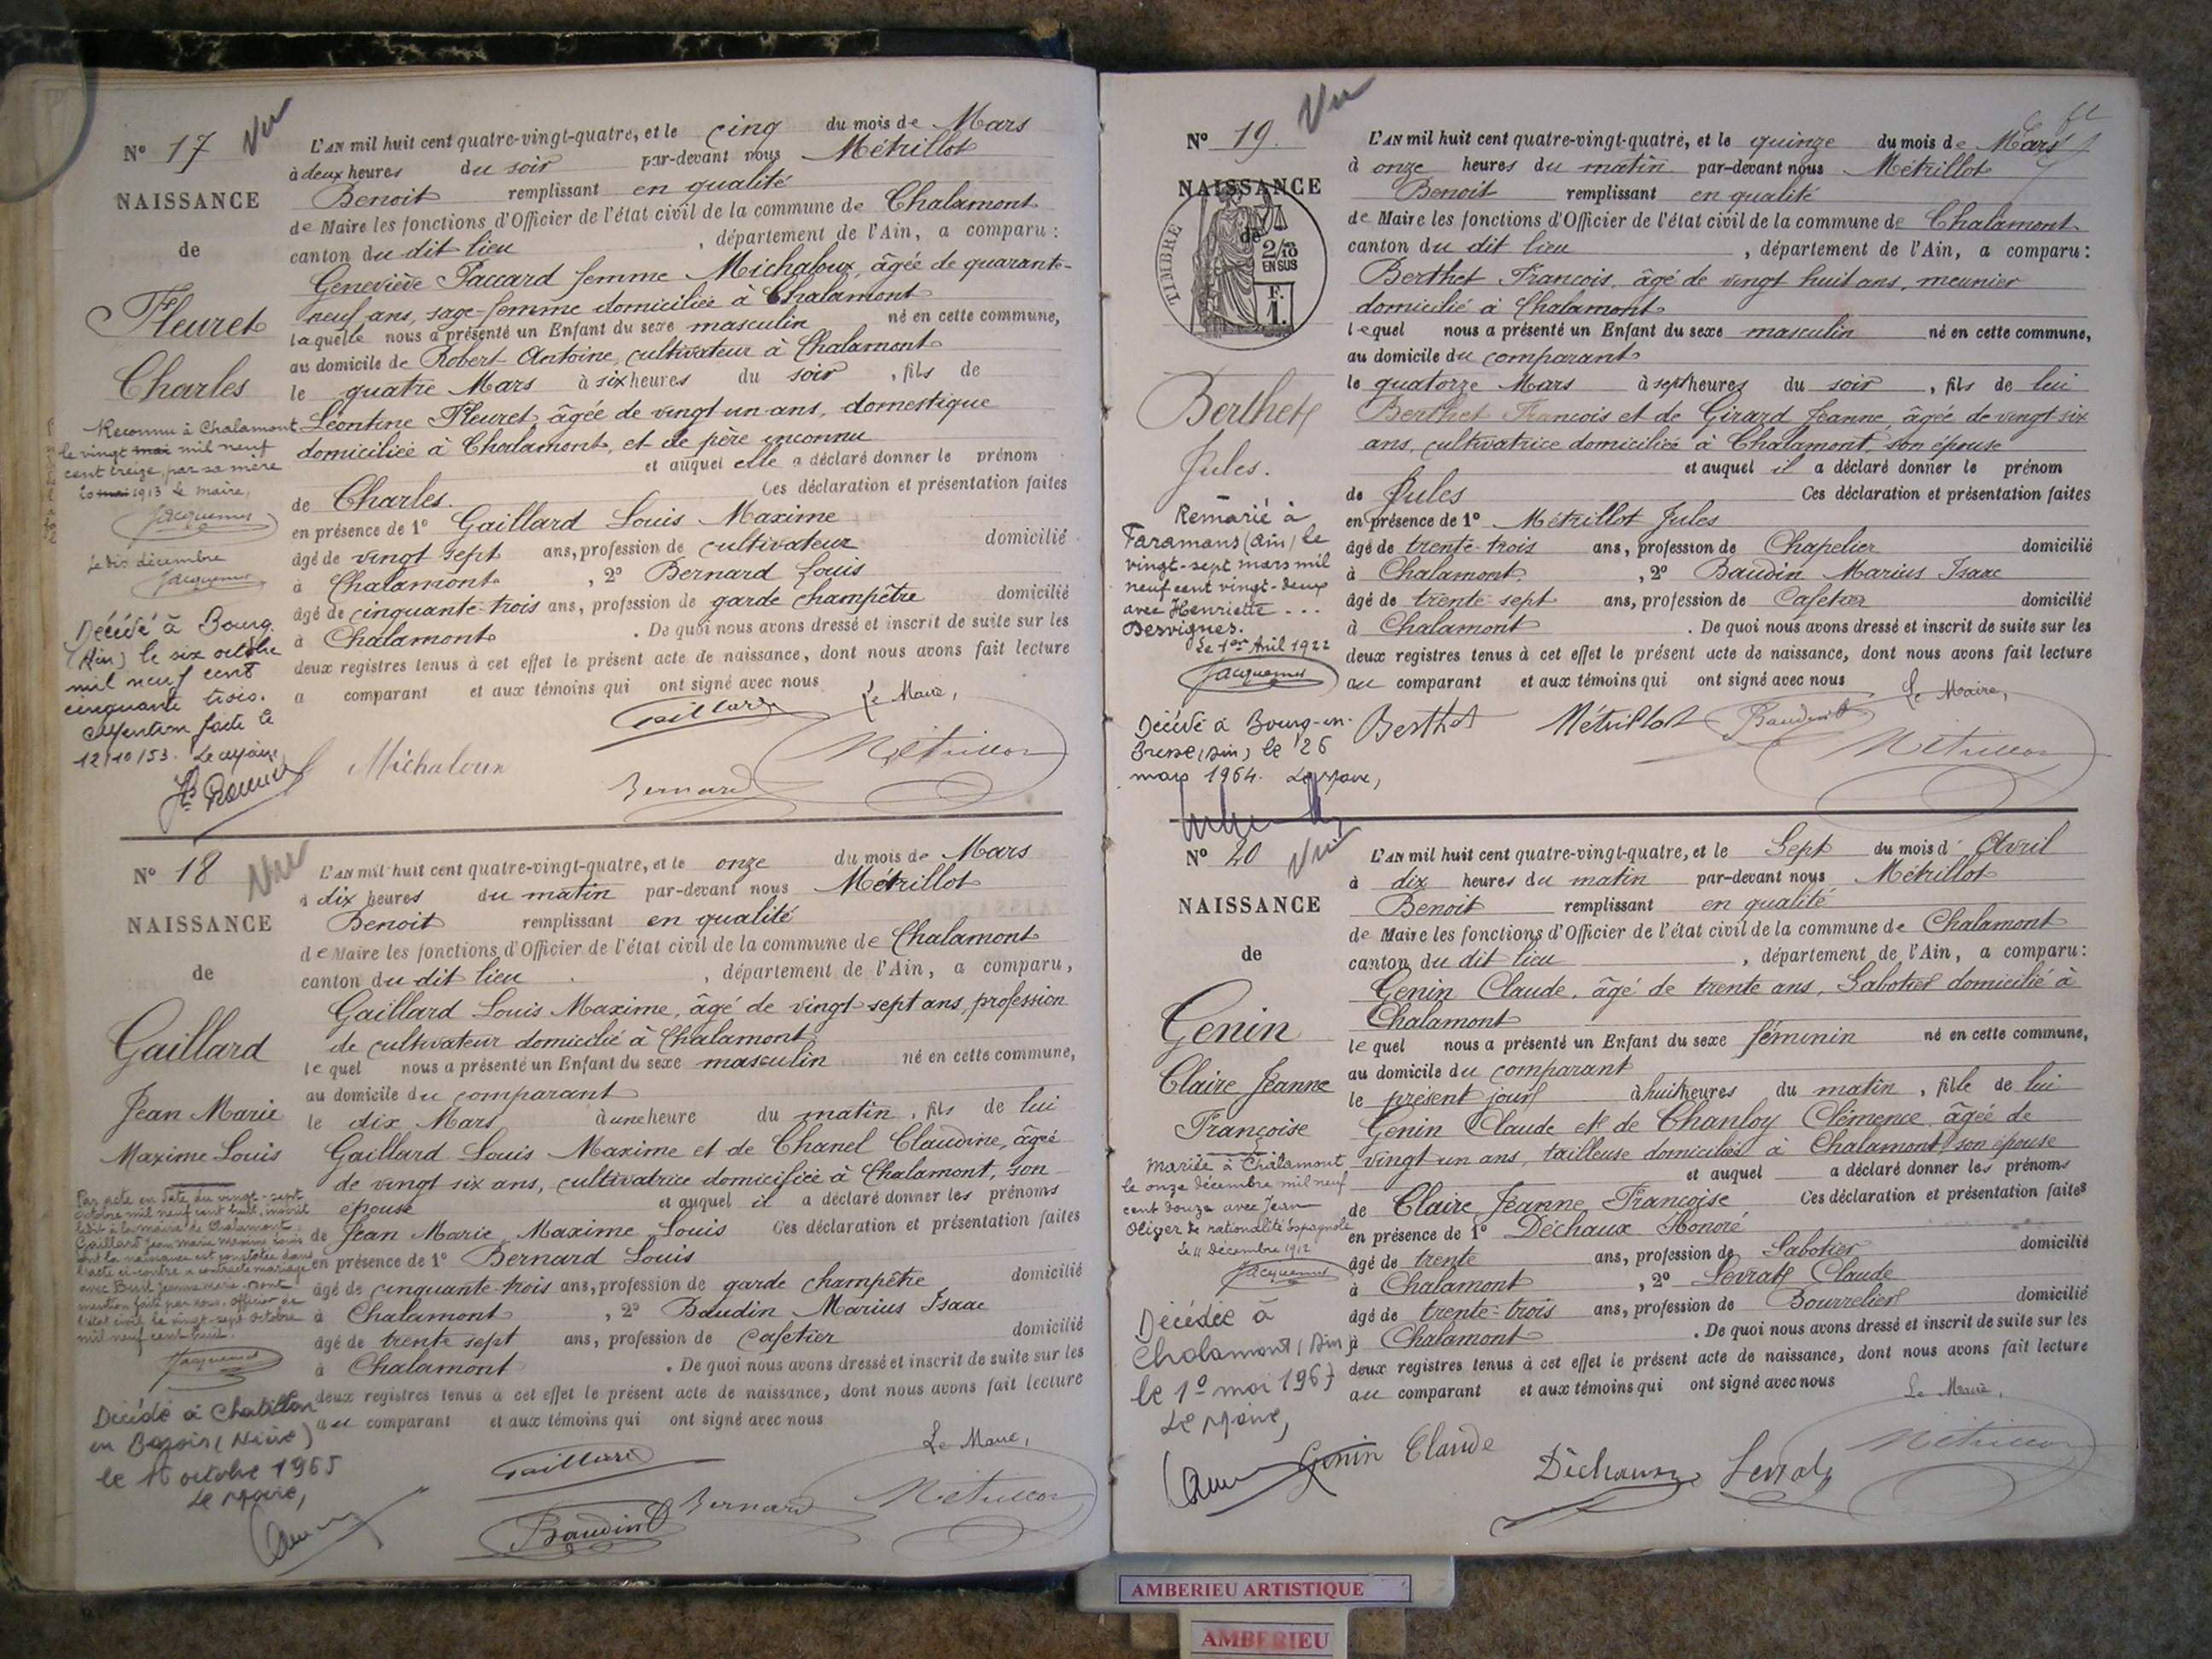 N° 17
Vu
NAISSANCE
de
Fleuret
Charles
Reconnu à Chalamont
le vingt mai mil neuf
cent treize, par sa mère
20 mai 1913 Le Maire,
Jacquemet
Le dix décembre
Jacquemet
Décédé à Bourg
(Ain) le six octobre
mil neuf cent
cinquante trois.
Mention faite le
12/10/53. Le Maire
L'AN mil huit cent quatre-vingt-quatre, et le cinq du mois de Mars
à deux heures du soir par-devant nous Métrillot
Benoit remplissant en qualité
de Maire les fonctions d'Officier de l'état civil de la commune de Chalamont
canton du dit lieu , département de l'Ain, a comparu :
Geneviève Paccard femme Michaloux, âgée de quarante-
neuf ans, sage-femme domiciliée à Chalamont
laquelle nous a présenté un Enfant du sexe masculin né en cette commune,
au domicile de Robert Antoine, cultivateur à Chalamont
le quatre Mars à six heures du soir , fils de
Léontine Fleuret âgée de vingt un ans, domestique
domiciliée à Chalamont, et de père inconnu
et auquel elle a déclaré donner le prénom
de Charles. Ces déclaration et présentation faites
en présence de 1° Gaillard Louis Maxime
âgé de vingt sept ans, profession de cultivateur domicilié
à Chalamont , 2° Bernard Louis
âgé de cinquante-trois ans, profession de garde champêtre domicilié
à Chalamont . De quoi nous avons dressé et inscrit de suite sur les
deux registres tenus à cet effet le présent acte de naissance, dont nous avons fait lecture
a comparant et aux témoins qui ont signé avec nous
Le Maire,
Gaillard
Michaloux
Bernard
Métrillot
N° 18
Vu
NAISSANCE
de
Gaillard
Jean Marie
Maxime Louis
Par acte en date du vingt-sept
octobre mil neuf cent huit, inscrit
ledit à la mairie de Chalamont,
Gaillard Jean Marie Maxime Louis
dont la naissance est constatée dans
l'acte ci-contre a contracté mariage
avec Jeanne Marie. Dont
mention faite par nous, officier de
l'état civil le vingt-sept octobre
mil neuf cent huit.
Jacquemet
Décédé à Chatillon
en Bazois (Nièvre)
le 16 octobre 1965
Le Maire,
L'AN mil huit cent quatre-vingt-quatre, et le onze du mois de Mars
à dix heures du matin par-devant nous Métrillot
Benoit remplissant en qualité
de Maire les fonctions d'Officier de l'état civil de la commune de Chalamont
canton du dit lieu , département de l'Ain, a comparu,
Gaillard Louis Maxime, âgé de vingt sept ans, profession
de cultivateur domicilié à Chalamont
lequel nous a présenté un Enfant du sexe masculin né en cette commune,
au domicile du comparant
le dix Mars à une heure du matin , fils de lui
Gaillard Louis Maxime et de Chanel Claudine, âgée
de vingt six ans, cultivatrice domiciliée à Chalamont, son
épouse et auquel il a déclaré donner les prénoms
de Jean Marie Maxime Louis Ces déclaration et présentation faites
en présence de 1° Bernard Louis
âgé de cinquante-trois ans, profession de garde champêtre domicilié
à Chalamont , 2° Baudin Marius Isaac
âgé de trente sept ans, profession de Cafetier domicilié
à Chalamont . De quoi nous avons dressé et inscrit de suite sur les
deux registres tenus à cet effet le présent acte de naissance, dont nous avons fait lecture
au comparant et aux témoins qui ont signé avec nous
Le Maire,
Gaillard
Bernard
Métrillot
Baudin
N° 19.
Vu
NAISSANCE
de
TIMBRE
2/10
EN SUS
F.
1.
Berthet
Jules.
Remarié à
Faramans (Ain) le
vingt-sept mars mil
neuf cent vingt-deux
avec Henriette ...
Desvignes.
Le 1er Avril 1922
Jacquemet
Décédé à Bourg-en-
Bresse (Ain) le 26
mars 1964. Le Maire,
L'AN mil huit cent quatre-vingt-quatre, et le quinze du mois de Mars
à onze heures du matin par-devant nous Métrillot
Benoit remplissant en qualité
de Maire les fonctions d'Officier de l'état civil de la commune de Chalamont
canton du dit lieu , département de l'Ain, a comparu :
Berthet François, âgé de vingt huit ans, meunier
domicilié à Chalamont
lequel nous a présenté un Enfant du sexe masculin né en cette commune,
au domicile du comparant
le quatorze Mars à sept heures du soir , fils de lui
Berthet François et de Girard Jeanne, âgée de vingt six
ans, cultivatrice domiciliée à Chalamont, son épouse
et auquel il a déclaré donner le prénom
de Jules Ces déclaration et présentation faites
en présence de 1° Métrillot Jules
âgé de trente-trois ans, profession de Chapelier domicilié
à Chalamont. , 2° Baudin Marius Isaac
âgé de trente sept ans, profession de Cafetier domicilié
à Chalamont . De quoi nous avons dressé et inscrit de suite sur les
deux registres tenus à cet effet le présent acte de naissance, dont nous avons fait lecture
au comparant et aux témoins qui ont signé avec nous
Le Maire,
Berthet Métrillot Baudin
Métrillot
N° 20
Vu
NAISSANCE
de
Genin
Claire Jeanne
Françoise
Mariée à Chalamont
le onze décembre mil neuf
cent douze avec Jean
Oliger de nationalité Espagnole
Le 11 décembre 1912
Jacquemet
Décédée à
Chalamont (Ain)
le 1° mai 1967
Le Maire,
L'AN mil huit cent quatre-vingt-quatre, et le Sept du mois d' Avril
à dix heures du matin par-devant nous Métrillot
Benoit remplissant en qualité
de Maire les fonctions d'Officier de l'état civil de la commune de Chalamont
canton du dit lieu , département de l'Ain, a comparu :
Genin Claude, âgé de trente ans, Sabotier domicilié à
Chalamont
lequel nous a présenté un Enfant du sexe féminin né en cette commune,
au domicile du comparant
le présent jour à huit heures du matin , fille de lui
Genin Claude et de Chanloy Clémence âgée de
vingt un ans, tailleuse domiciliés à Chalamont son épouse
et auquel a déclaré donner les prénoms
de Claire Jeanne Françoise Ces déclaration et présentation faites
en présence de 1° Déchaux Honoré
âgé de trente ans, profession de Sabotier domicilié
à Chalamont , 2° Levrat Claude
âgé de trente-trois ans, profession de Bourrelier domicilié
à Chalamont . De quoi nous avons dressé et inscrit de suite sur les
deux registres tenus à cet effet le présent acte de naissance, dont nous avons fait lecture
au comparant et aux témoins qui ont signé avec nous
Le Maire,
Genin Claude
Déchaux Levrat
Métrillot
AMBERIEU ARTISTIQUE
AMBERIEU